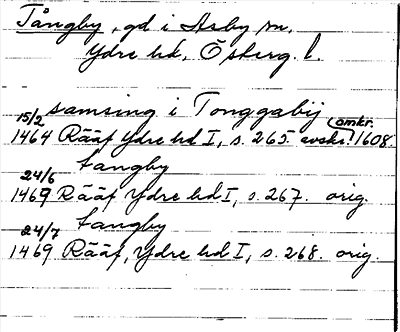 Tångby, gd i Asby sn,
Ydre hd, Österg. l.
samsing i Tonggabij
15/2 1464 Rääf Ydre hd I, s. 265. avskr. omkr. 1608.
tangby
24/6 1469 Rääf Ydre hd I, s. 267. orig.
tangby
24/7 1469 Rääf, Ydre hd I, s. 268. orig.